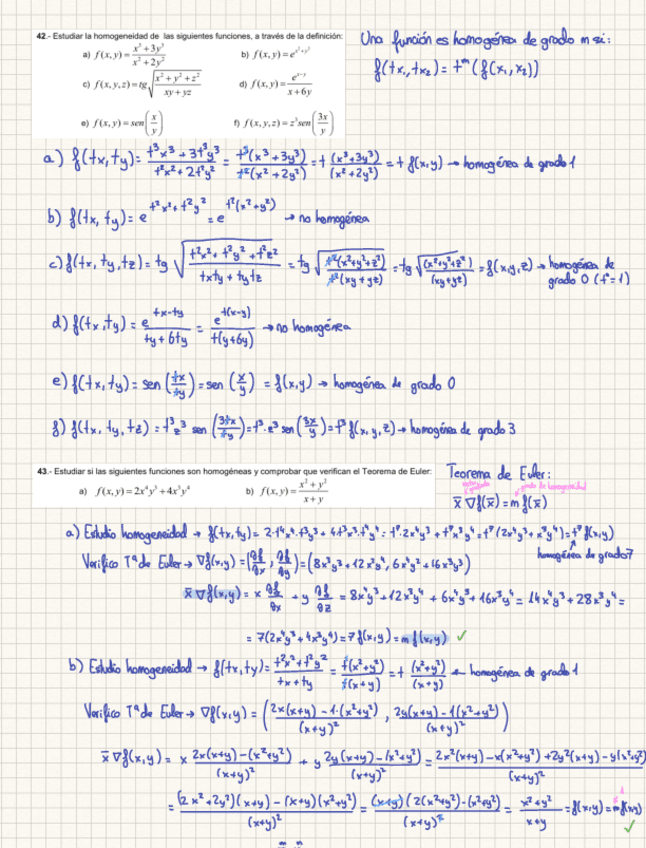 42.- Estudiar la homogeneidad de las siguientes funciones, a través de la definición:
a) f(x, y) = (x³+3y³)/(x²+2y²)
b) f(x, y) = e^(x²+y²)
c) f(x, y, z) = tg √((x²+y²+z²)/(xy+yz))
d) f(x, y) = e^(x-y)/(x+6y)
e) f(x, y) = sen(x/y)
f) f(x, y, z) = z³sen(3x/y)
Una función es homogénea de grado m si:
f(tx₁, tx₂) = t^m (f(x₁, x₂))
a) f(tx, ty) = (t³x³ + 3t³y³)/(t²x² + 2t²y²) = t³(x³ + 3y³)/t²(x² + 2y²) = t (x³+3y³)/(x²+2y²) = t f(x,y) → homogénea de grado 1
b) f(tx, ty) = e^(t²x²+t²y²) = e^(t²(x²+y²)) → no homogénea
c) f(tx, ty, tz) = tg √((t²x²+t²y²+t²z²)/(txty + tytz)) = tg √(t²(x²+y²+z²)/t²(xy+yz)) = tg √((x²+y²+z²)/(xy+yz)) = f(x,y,z) → homogénea de
grado 0 (t⁰=1)
d) f(tx, ty) = e^(tx-ty)/(ty + 6ty) = e^(t(x-y))/t(y+6y) → no homogénea
e) f(tx, ty) = sen(tx/ty) = sen(x/y) = f(x,y) → homogénea de grado 0
f) f(tx, ty, tz) = t³z³ sen(3tx/ty) = t³·z³ sen(3x/y) = t³ f(x, y, z) → homogénea de grado 3
43.- Estudiar si las siguientes funciones son homogéneas y comprobar que verifican el Teorema de Euler:
a) f(x, y) = 2x⁴y³ + 4x³y⁴
b) f(x, y) = (x²+y²)/(x+y)
Teorema de Euler:
grado de homogeneidad
x̄ ∇f(x̄) = m f(x̄)
a) Estudio homogeneidad → f(tx, ty) = 2·t⁴x⁴·t³y³ + 4t³x³·t⁴y⁴ = t⁷·2x⁴y³ + t⁷x³y⁴ = t⁷(2x⁴y³ + x³y⁴) = t⁷ f(x,y)
homogénea de grado 7
Verifico Tª de Euler → ∇f(x,y) = (∂f/∂x, ∂f/∂y) = (8x³y³ + 12x²y⁴, 6x⁴y² + 16x³y³)
x̄ ∇f(x,y) = x ∂f/∂x + y ∂f/∂z = 8x⁴y³ + 12x³y⁴ + 6x⁴y³ + 16x³y⁴ = 14x⁴y³ + 28x³y⁴ =
= 7(2x⁴y³ + 4x³y⁴) = 7 f(x,y) = m f(x,y) ✓
b) Estudio homogeneidad → f(tx, ty) = (t²x² + t²y²)/(tx + ty) = t²(x²+y²)/t(x+y) = t (x²+y²)/(x+y) ← homogénea de grado 1
Verifico Tª de Euler → ∇f(x,y) = ((2x(x+y) - 1·(x²+y²))/(x+y)², (2y(x+y) - 1(x²+y²))/(x+y)²)
x̄ ∇f(x,y) = x (2x(x+y) - (x²+y²))/(x+y)² + y (2y(x+y) - (x²+y²))/(x+y)² = (2x²(x+y) - x(x²+y²) + 2y²(x+y) - y(x²+y²))/(x+y)²
= ((2x² + 2y²)(x+y) - (x+y)(x²+y²))/(x+y)² = (x+y)(2(x²+y²) - (x²+y²))/(x+y)² = (x²+y²)/(x+y) = f(x,y) = m f(x,y) ✓